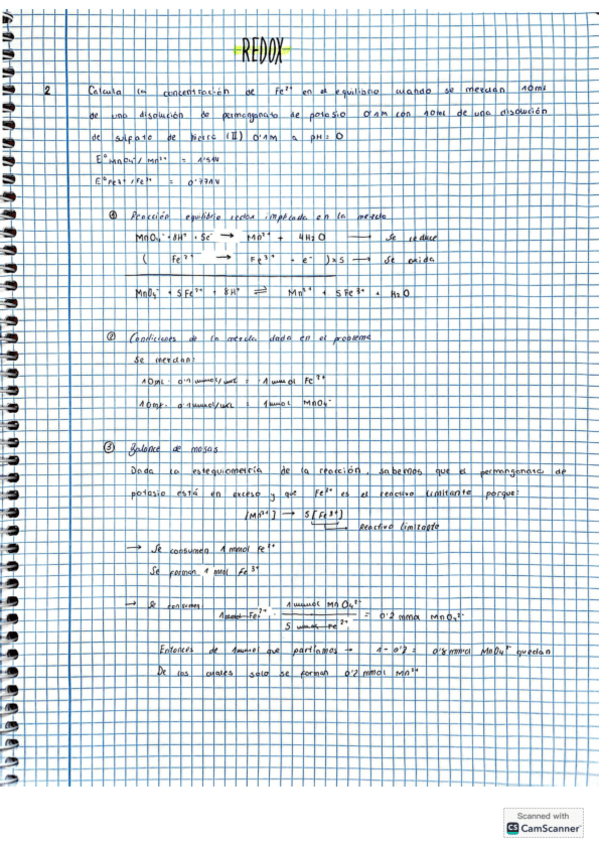 REDOX
2 Calcula la concentración de Fe²⁺ en el equilibrio cuando se mezclan 10ml
de una disolución de permanganato de potasio 0'1M con 10ml de una disolución
de sulfato de hierro (II) 0'1M a pH = 0
E° MnO₄⁻/Mn²⁺ = 1'51V
E° Fe³⁺/Fe²⁺ = 0'771V
① Reacción equilibrio redox implicada en la mezcla
MnO₄⁻ + 8H⁺ + 5e⁻ → Mn²⁺ + 4H₂O → Se reduce
( Fe²⁺ → Fe³⁺ + e⁻ ) x5 → Se oxida
MnO₄⁻ + 5Fe²⁺ + 8H⁺ ⇌ Mn²⁺ + 5Fe³⁺ + H₂O
② Condiciones de la mezcla dada en el problema
Se mezclan:
10mL · 0'1 mmol/mL = 1 mmol Fe²⁺
10mL · 0'1 mmol/mL = 1 mmol MnO₄⁻
③ Balance de masas
Dada la estequiometría de la reacción, sabemos que el permanganato de
potasio está en exceso y que Fe²⁺ es el reactivo limitante porque:
[Mn²⁺] → 5[Fe³⁺]
Reactivo limitante
→ Se consumen 1 mmol Fe²⁺
Se forman 1 mmol Fe³⁺
→ Se consumen
1 mmol Fe²⁺ · 1 mmol MnO₄⁻ / 5 mmol Fe²⁺ = 0'2 mmol MnO₄⁻
Entonces de 1 mmol que partíamos → 1 - 0'2 = 0'8 mmol MnO₄⁻ quedan
De los cuales solo se forman 0'2 mmol Mn²⁺
Scanned with
CS CamScanner